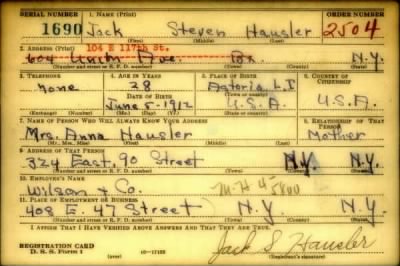 SERIAL NUMBER 1. NAME (Print) ORDER NUMBER
1690 Jack Steven Hausler 2504
(First) (Middle) (Last)
2. ADDRESS (Print) 104 E 117th St.
604 Union Ave. Bx. N.Y.
(Number and street or R. F. D. number) (Town) (County) (State)
3. TELEPHONE 4. AGE IN YEARS 5. PLACE OF BIRTH 6. COUNTRY OF CITIZENSHIP
none 28 Astoria L.I
DATE OF BIRTH (Town) (County)
June 5-1912 U.S.A. U.S.A.
(Exchange) (Number) (Mo.) (Day) (Yr.) (State or country)
7. NAME OF PERSON WHO WILL ALWAYS KNOW YOUR ADDRESS 8. RELATIONSHIP OF THAT PERSON
Mrs. Anna Hausler Mother
(Mr., Mrs., Miss) (First) (Middle) (Last)
9. ADDRESS OF THAT PERSON
324 East 90 Street N.Y. N.Y.
(Number and street or R. F. D. number) (Town) (County) (State)
10. EMPLOYER'S NAME
Wilson & Co. MH 4-5800
11. PLACE OF EMPLOYMENT OR BUSINESS
408 E. 47 Street N.Y N.Y.
(Number and street or R. F. D. number) (Town) (County) (State)
I AFFIRM THAT I HAVE VERIFIED ABOVE ANSWERS AND THAT THEY ARE TRUE.
REGISTRATION CARD
D. S. S. Form 1 16-17105 Jack S Hausler
(Registrant's signature)